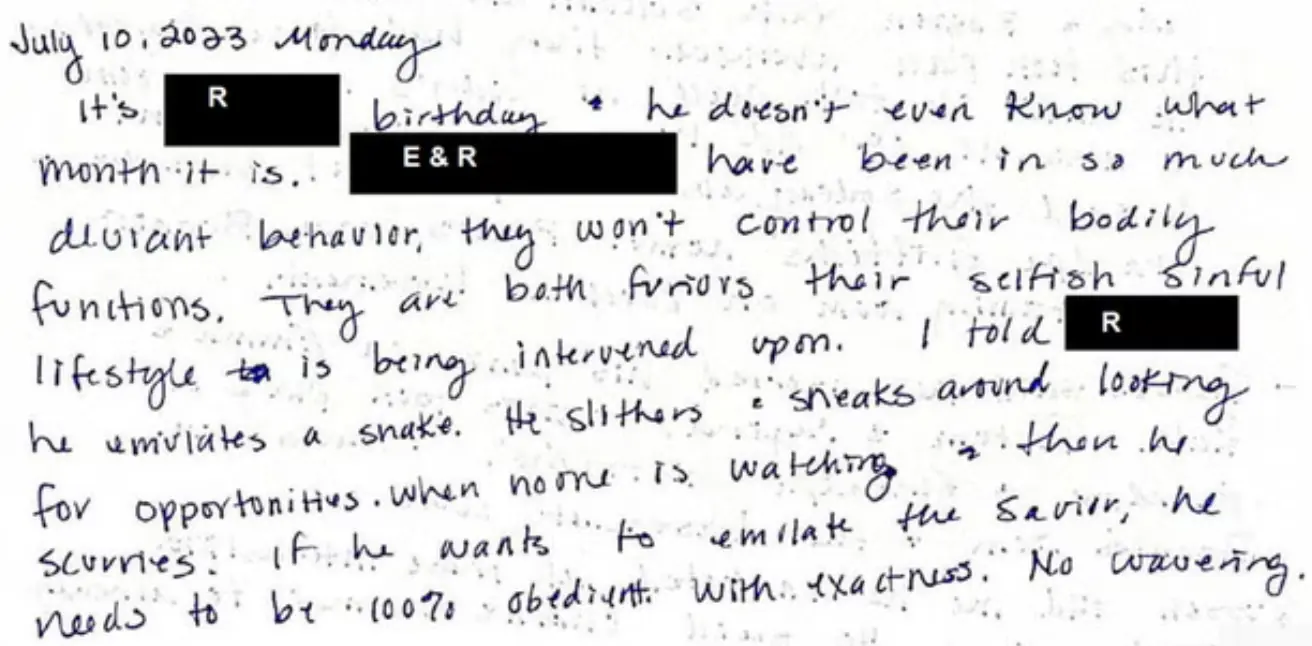 July 10, 2023 Monday
It's R birthday & he doesn't even know what
month it is. E & R have been in so much
deviant behavior, they won't control their bodily
functions. They are both furiors their selfish sinful
lifestyle is being intervened upon. I told R
he emulates a snake. He slithers & sneaks around looking
for opportunities. When noone is watching & then he
scurries. If he wants to emulate the Savior, he
needs to be 100% obedient with exactness. No wavering.